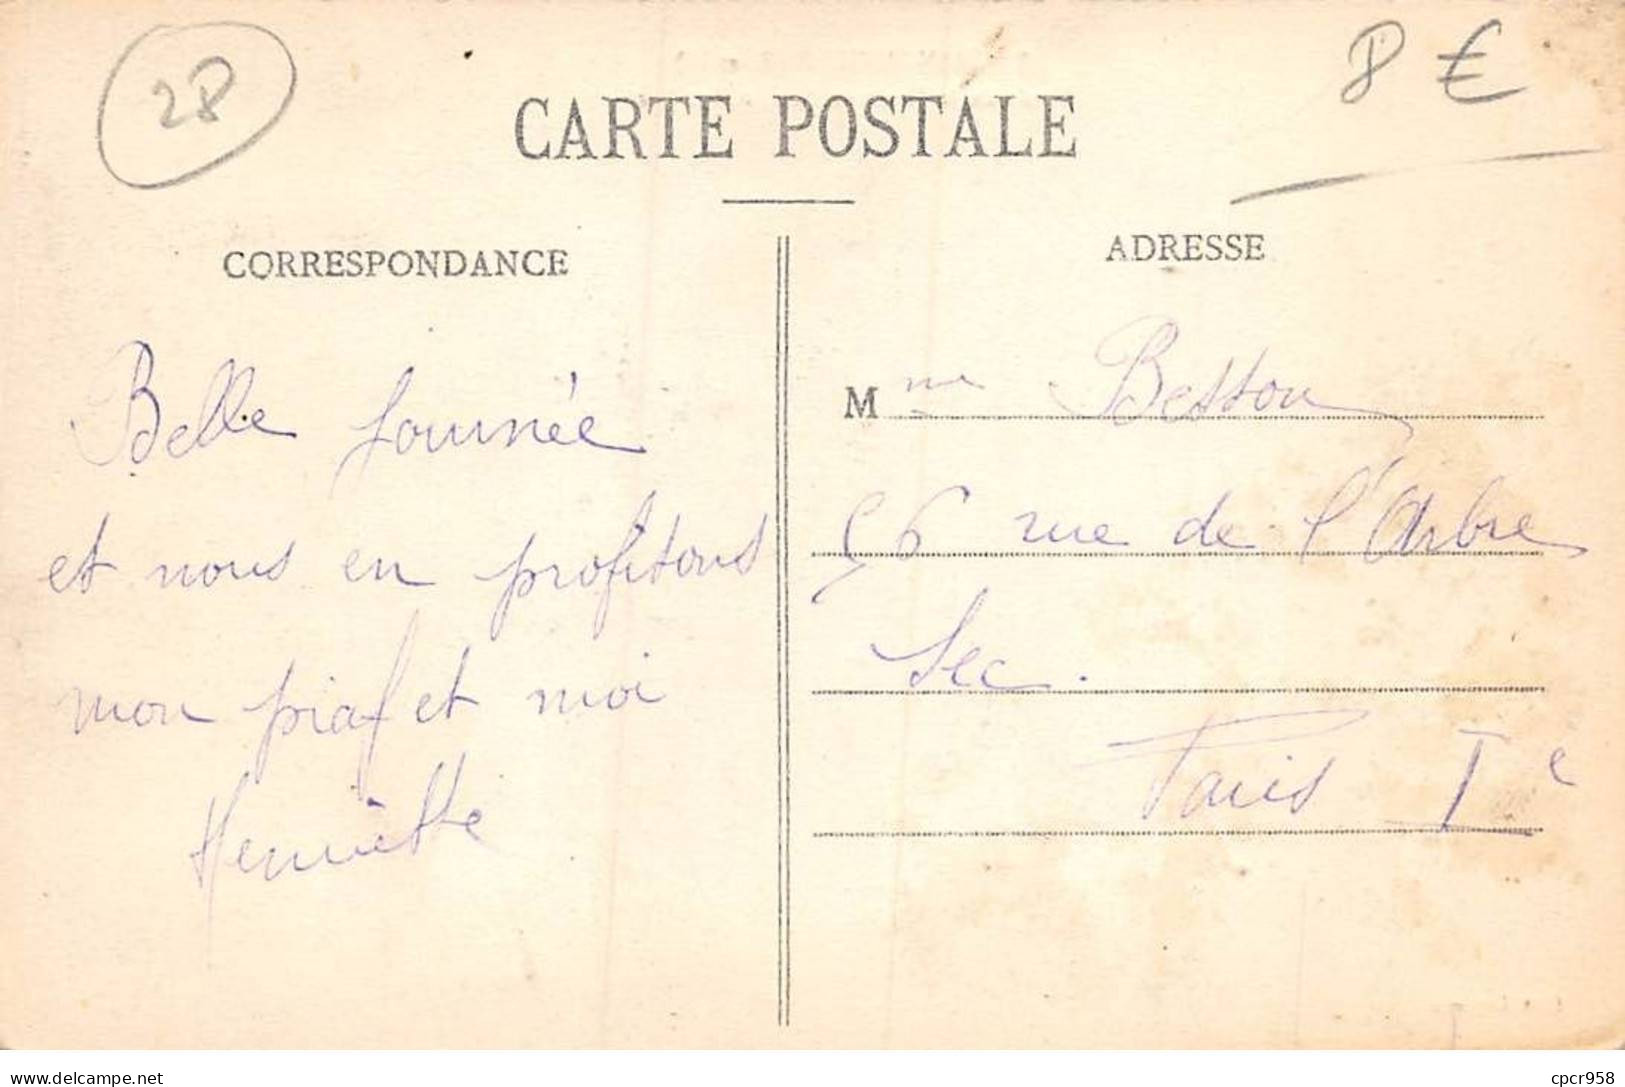 28
8 €
CARTE POSTALE
CORRESPONDANCE
ADRESSE
Belle journée
et nous en profitons
mon piaf et moi
Henriette
Mme Besson
56 rue de l'Arbre
Sec.
Paris Ie
delcampe.net
cpcr958